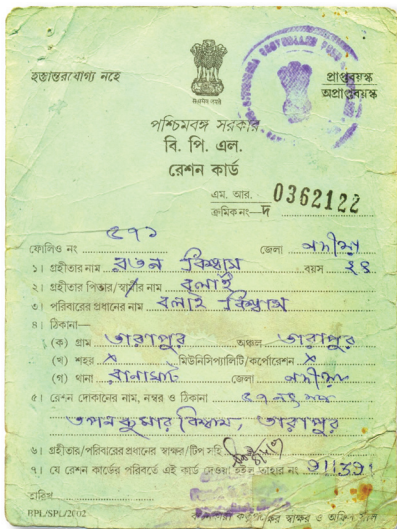 হস্তান্তরযোগ্য নহে
প্রাপ্তবয়স্ক
অপ্রাপ্তবয়স্ক
পশ্চিমবঙ্গ সরকার
বি. পি. এল.
রেশন কার্ড
এম. আর.
ক্রমিক নং—দ 0362122
ফোলিও নং ৫৭১ জেলা নদীয়া
১। গ্রহীতার নাম রতন বিশ্বাস বয়স ২৪
২। গ্রহীতার পিতার/স্বামীর নাম বলাই
৩। পরিবারের প্রধানের নাম বলাই বিশ্বাস
৪। ঠিকানা—
(ক) গ্রাম তারাপুর অঞ্চল তারাপুর
(খ) শহর X মিউনিসিপ্যালিটি/কর্পোরেশন X
(গ) থানা রানাঘাট জেলা নদীয়া
৫। রেশন দোকানের নাম, নম্বর ও ঠিকানা
তপন কুমার বিশ্বাস, তারাপুর
৬। গ্রহীতা/পরিবারের প্রধানের স্বাক্ষর/টিপ সহি
৭। যে রেশন কার্ডের পরিবর্তে এই কার্ড দেওয়া হইল তাহার নং
তারিখ
BPL/SPL/2002 স্বাক্ষর ও অফিস সীল